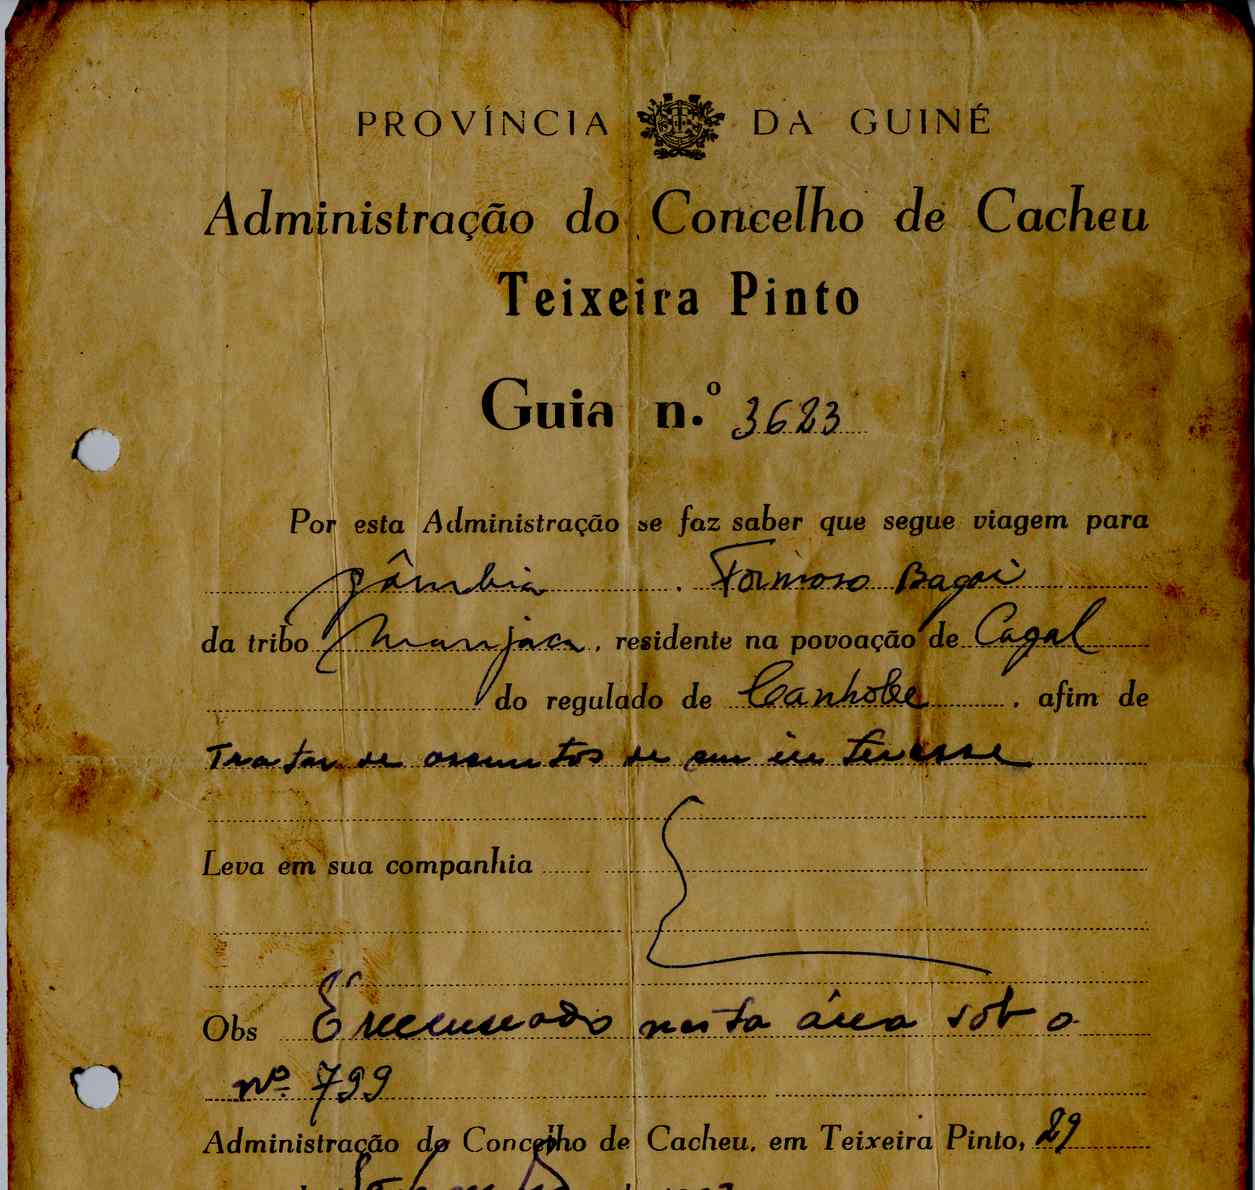 PROVÍNCIA DA GUINÉ
Administração do Concelho de Cacheu
Teixeira Pinto
Guia n.º 3623
Por esta Administração se faz saber que segue viagem para
Gâmbia. Formoso Bagai
da tribo Manjaca, residente na povoação de Cagal
do regulado de Canhobe, afim de
Tratar de assuntos de seu interesse
Leva em sua companhia
Obs É recenseado nesta área sob o
nº 799
Administração do Concelho de Cacheu, em Teixeira Pinto, 29